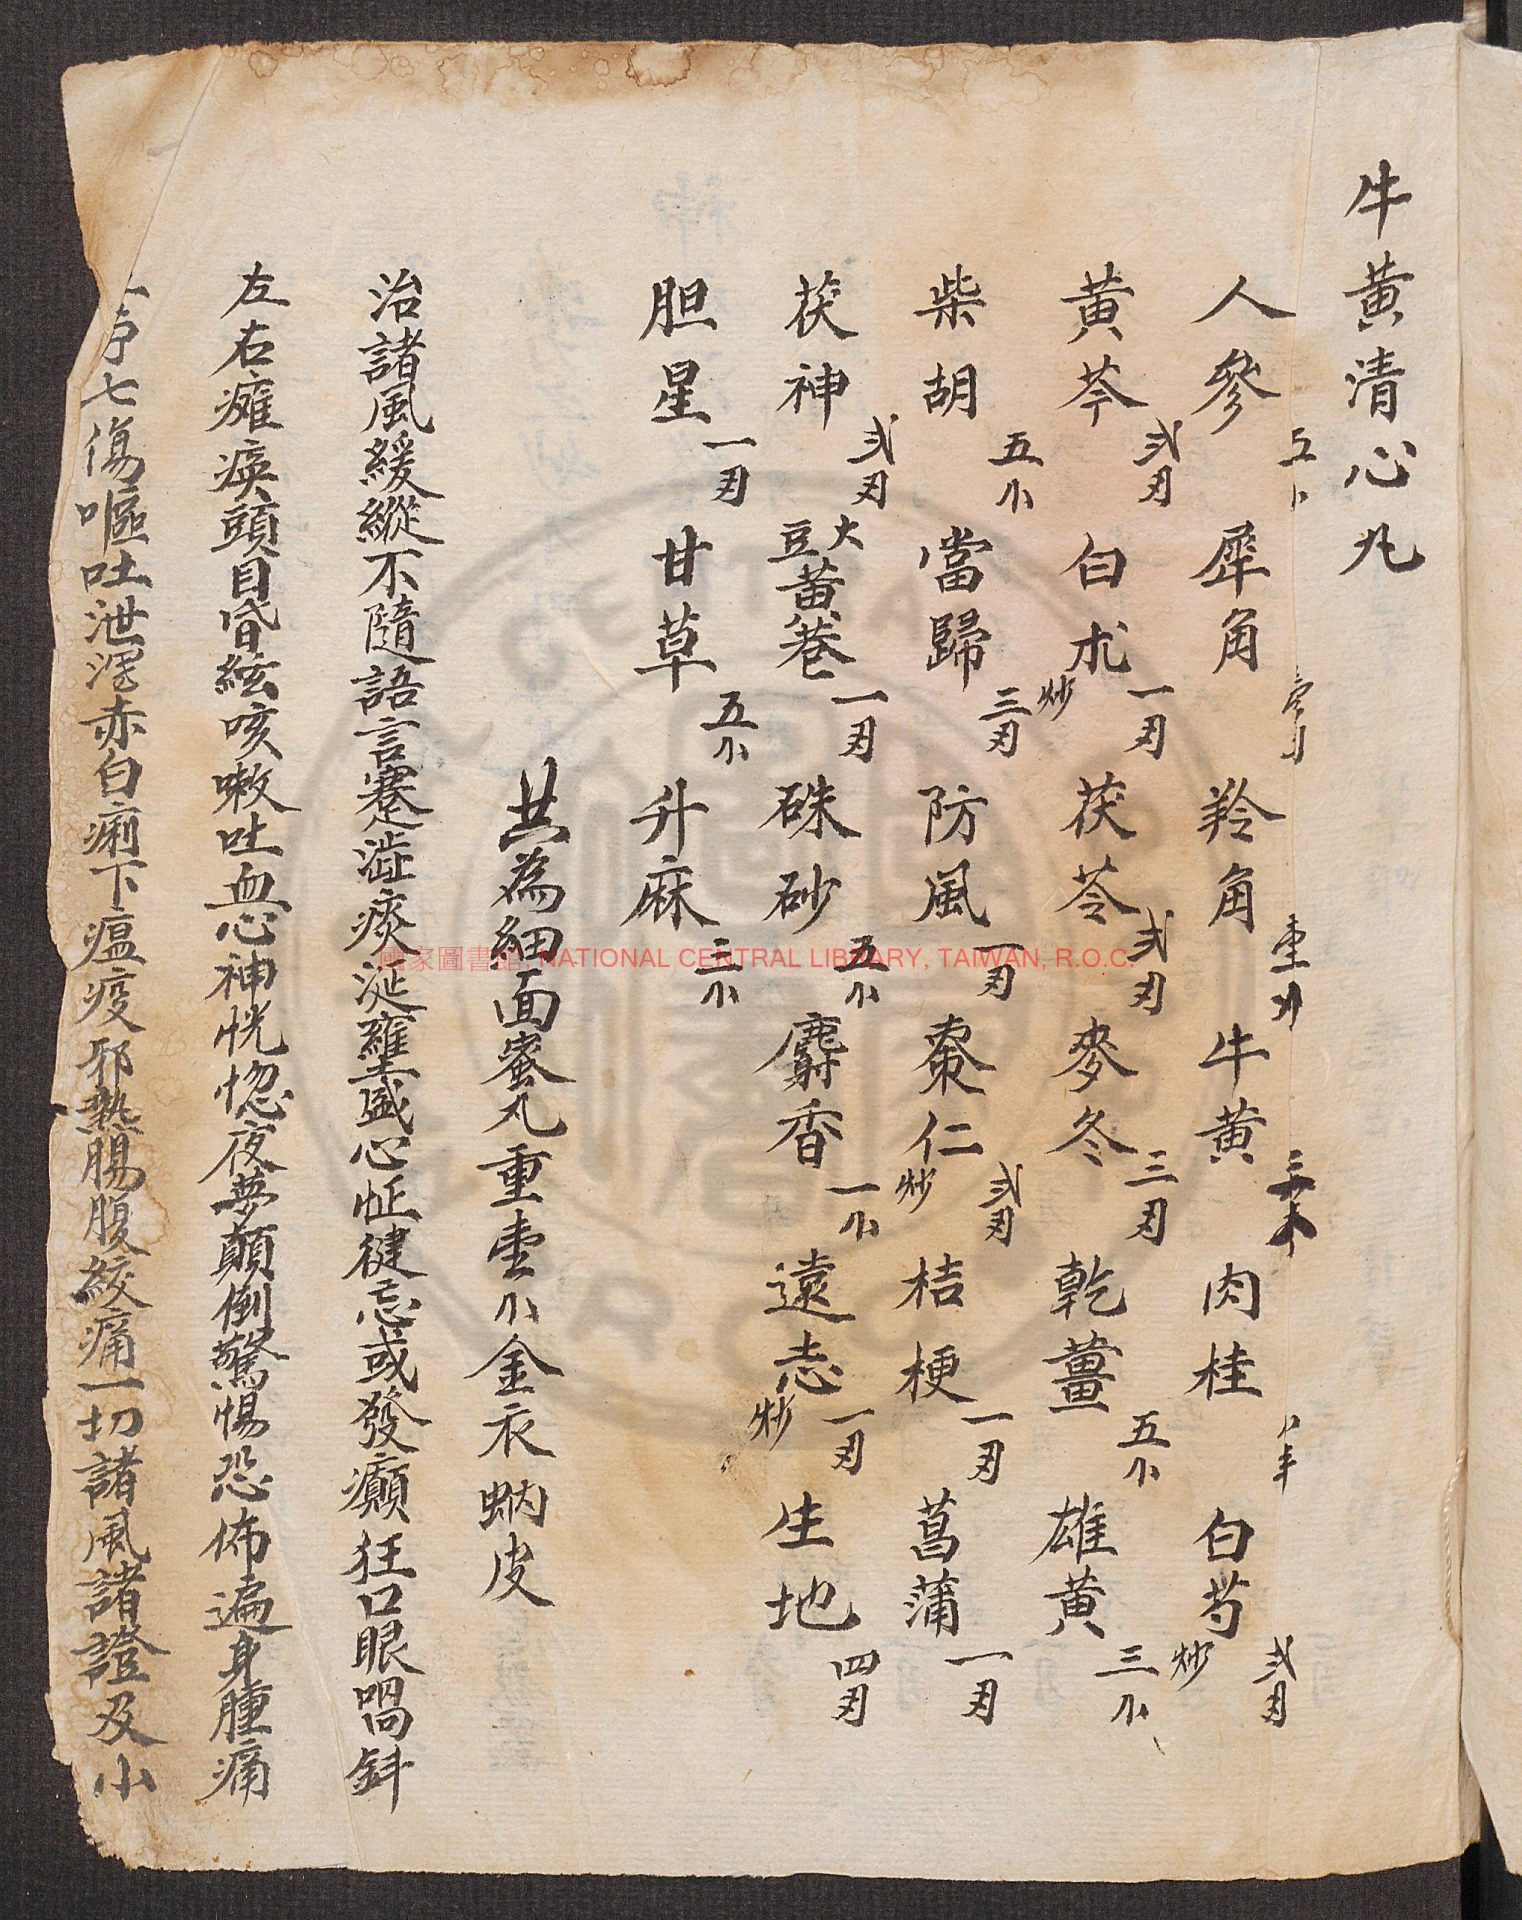 牛黄清心丸
人參 犀角 羚角 牛黄 肉桂 白芍炒 弍刄
黄芩弍刄 白朮炒一刄 茯苓弍刄 麥冬三刄 乾薑五小 雄黄三小
柴胡五小 當歸三刄 防風一刄 棗仁炒弍刄 桔梗一刄 菖蒲一刄
茯神弍刄 大豆黄巻一刄 硃砂五小 麝香一小 遠志炒一刄 生地四刄
胆星一刄 甘草五小 升麻三小
共為細面蜜丸重壹小金衣蚋皮
治諸風緩縱不隨語言蹇澁痰涎壅盛心怔健忘或發癲狂口眼喎斜
左右癱瘓頭目昏絃咳嗽吐血心神恍惚夜夢顛倒驚惕恐佈遍身腫痛
七傷嘔吐泄瀉赤白痢下瘟疫邪熱腸腹絞痛一切諸風諸證及小
國家圖書館, NATIONAL CENTRAL LIBRARY, TAIWAN, R.O.C.